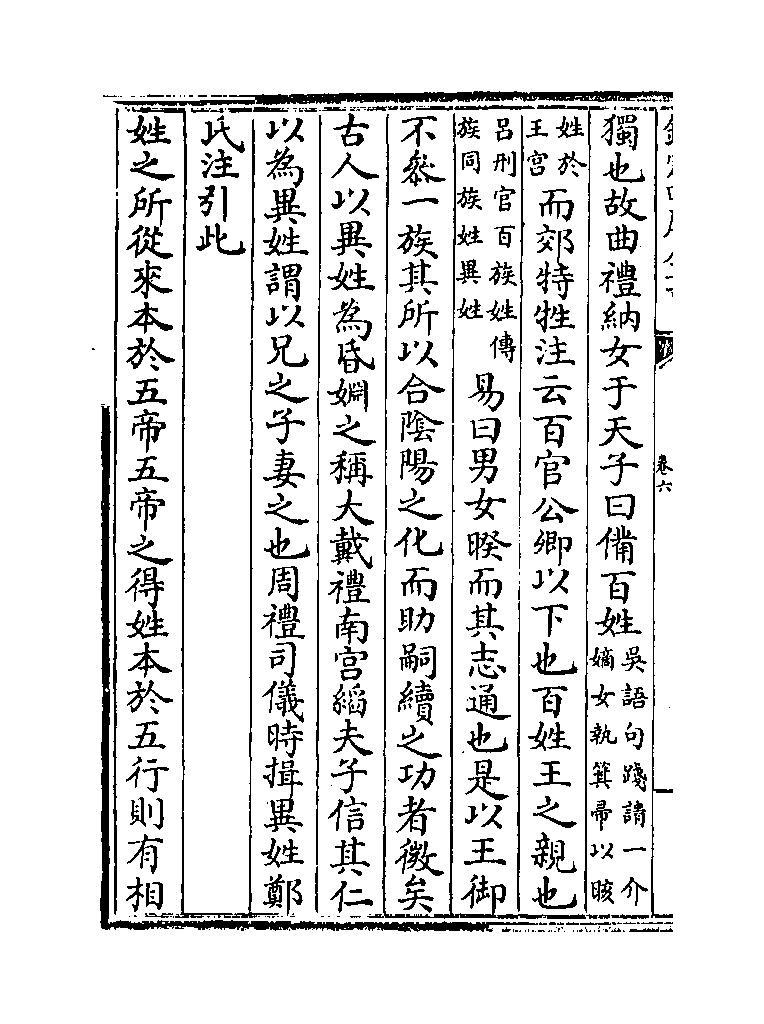 卷六
獨也故曲禮納女于天子曰備百姓吳語句踐請一介嫡女執箕帚以晐
姓於王宮而郊特牲注云百官公卿以下也百姓王之親也
呂刑官百族姓傳族同族姓異姓易曰男女暌而其志通也是以王御
不叅一族其所以合陰陽之化而助嗣續之功者微矣
古人以異姓為昏婣之稱大戴禮南宮縚夫子信其仁
以為異姓謂以兄之子妻之也周禮司儀時揖異姓鄭
氏注引此
姓之所從來本於五帝五帝之得姓本於五行則有相